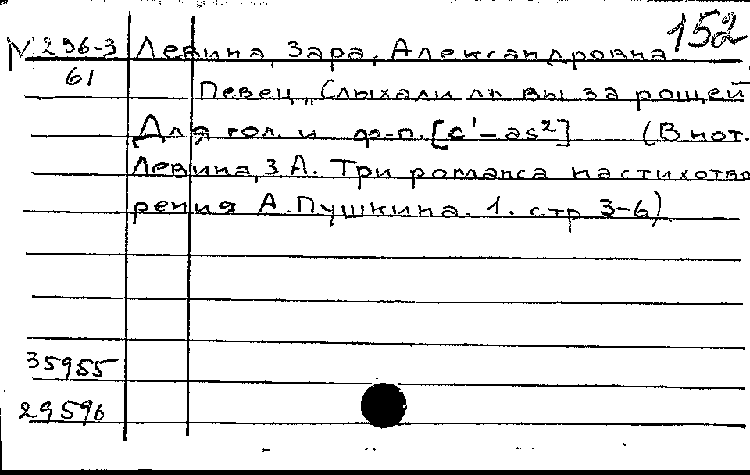 152
N 296-3 Левина, Зара, Александровна
61
Певец „Слыхали ль вы за рощей
Для гол. и ф-п. [c'-as²] (В нот.
Левина, З А. Три романса на стихотво
рения А. Пушкина. 1. стр 3-6)
35955
29596